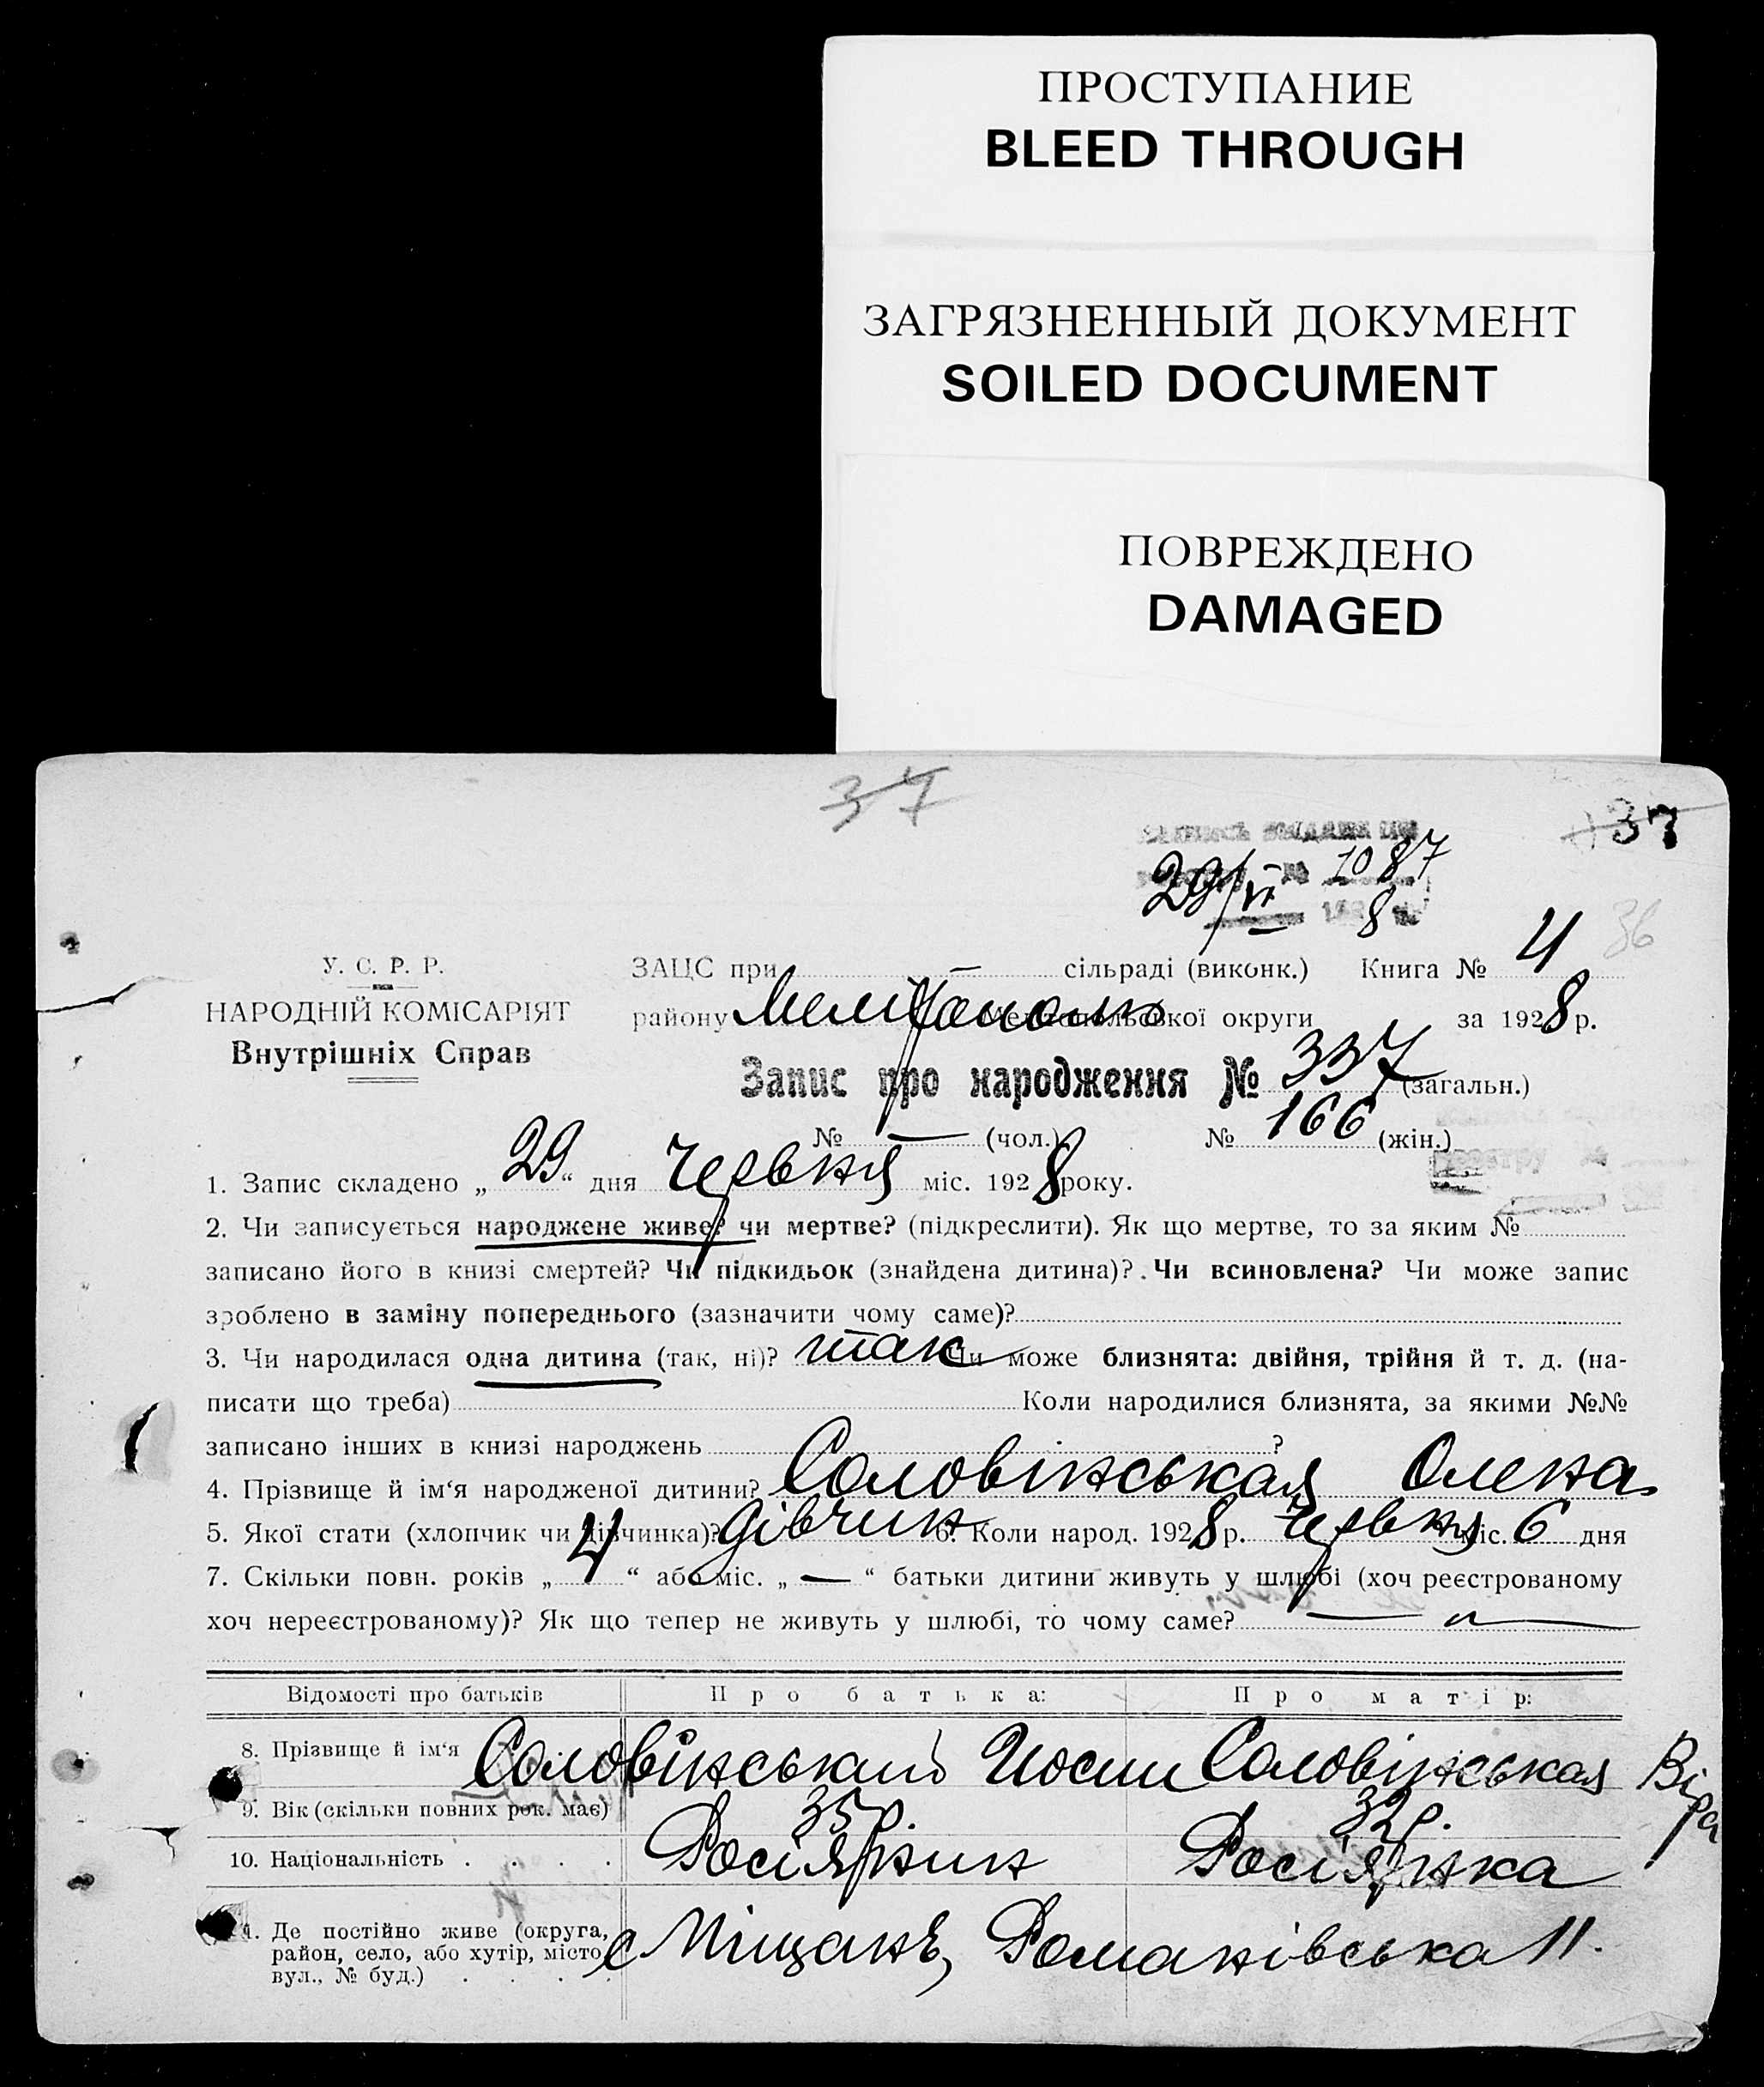 ПРОСТУПАНИЕ
BLEED THROUGH
ЗАГРЯЗНЕННЫЙ ДОКУМЕНТ
SOILED DOCUMENT
ПОВРЕЖДЕНО
DAMAGED
37
37
29/VI № 1087
8
36
У. С. Р. Р.
НАРОДНІЙ КОМІСАРІЯТ
Внутрішніх Справ
ЗАЦС при — сільраді (виконк.) Книга № 4
району Мелітополь Мелітопольської округи за 1928 р.
Запис про народження № 337 (загальн.)
№ — (чол.) № 166 (жін.)
1. Запис складено „29“ дня Червня міс. 1928 року.
2. Чи записується народжене живе? чи мертве? (підкреслити). Як що мертве, то за яким №
записано його в книзі смертей? Чи підкидьок (знайдена дитина)? Чи всиновлена? Чи може запис
зроблено в заміну попереднього (зазначити чому саме)?
3. Чи народилася одна дитина (так, ні)? так Чи може близнята: двійня, трійня й т. д. (на-
писати що треба) Коли народилися близнята, за якими №№
записано інших в книзі народжень ?
4. Прізвище й ім‘я народженої дитини? Соловінськая Олена
5. Якої стати (хлопчик чи дівчинка)? дівчин 6. Коли народ. 1928 р. Червня міс. 6 дня
7. Скільки повн. років „4“ або міс. „—“ батьки дитини живуть у шлюбі (хоч реєстрованому
хоч нереєстрованому)? Як що тепер не живуть у шлюбі, то чому саме? — „ —
Відомості про батьків Про батька: Про матір:
8. Прізвище й ім‘я Соловінський Йосип Соловінськая Віра
9. Вік (скільки повних рок. має) 35 р. 32 р.
10. Національність . . . . Росіянин Росіянка
11. Де постійно живе (округа,
район, село, або хутір, місто,
вул., № буд.) . . . . с Міщань, Романівська 11.